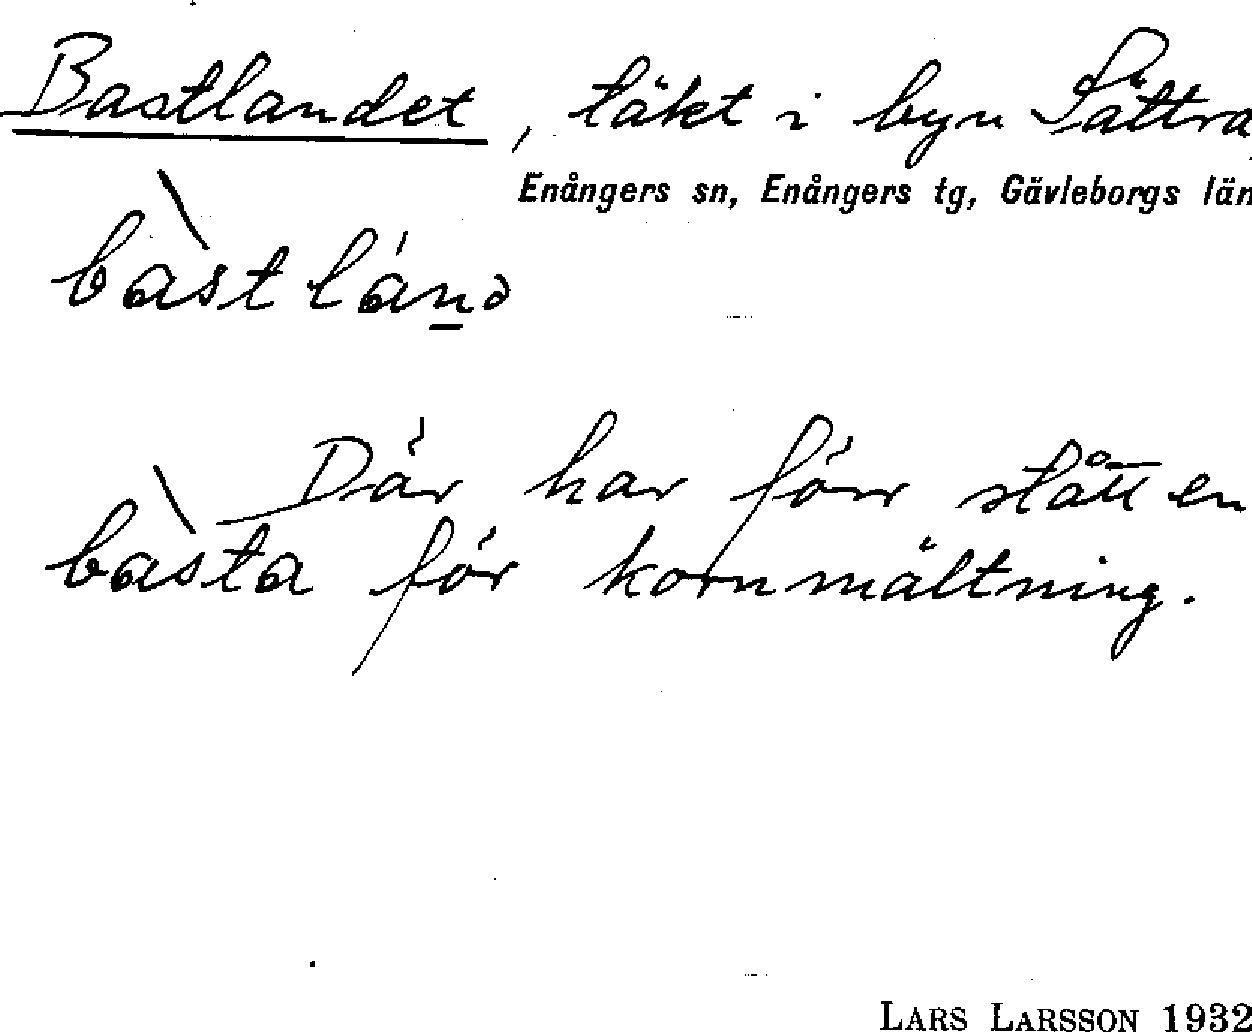 Bastlandet, täkt i byn Sättra,
Enångers sn, Enångers tg, Gävleborgs län
bàstlánə
Där har förr stått en
bàsta för kornmältning.
LARS LARSSON 1932